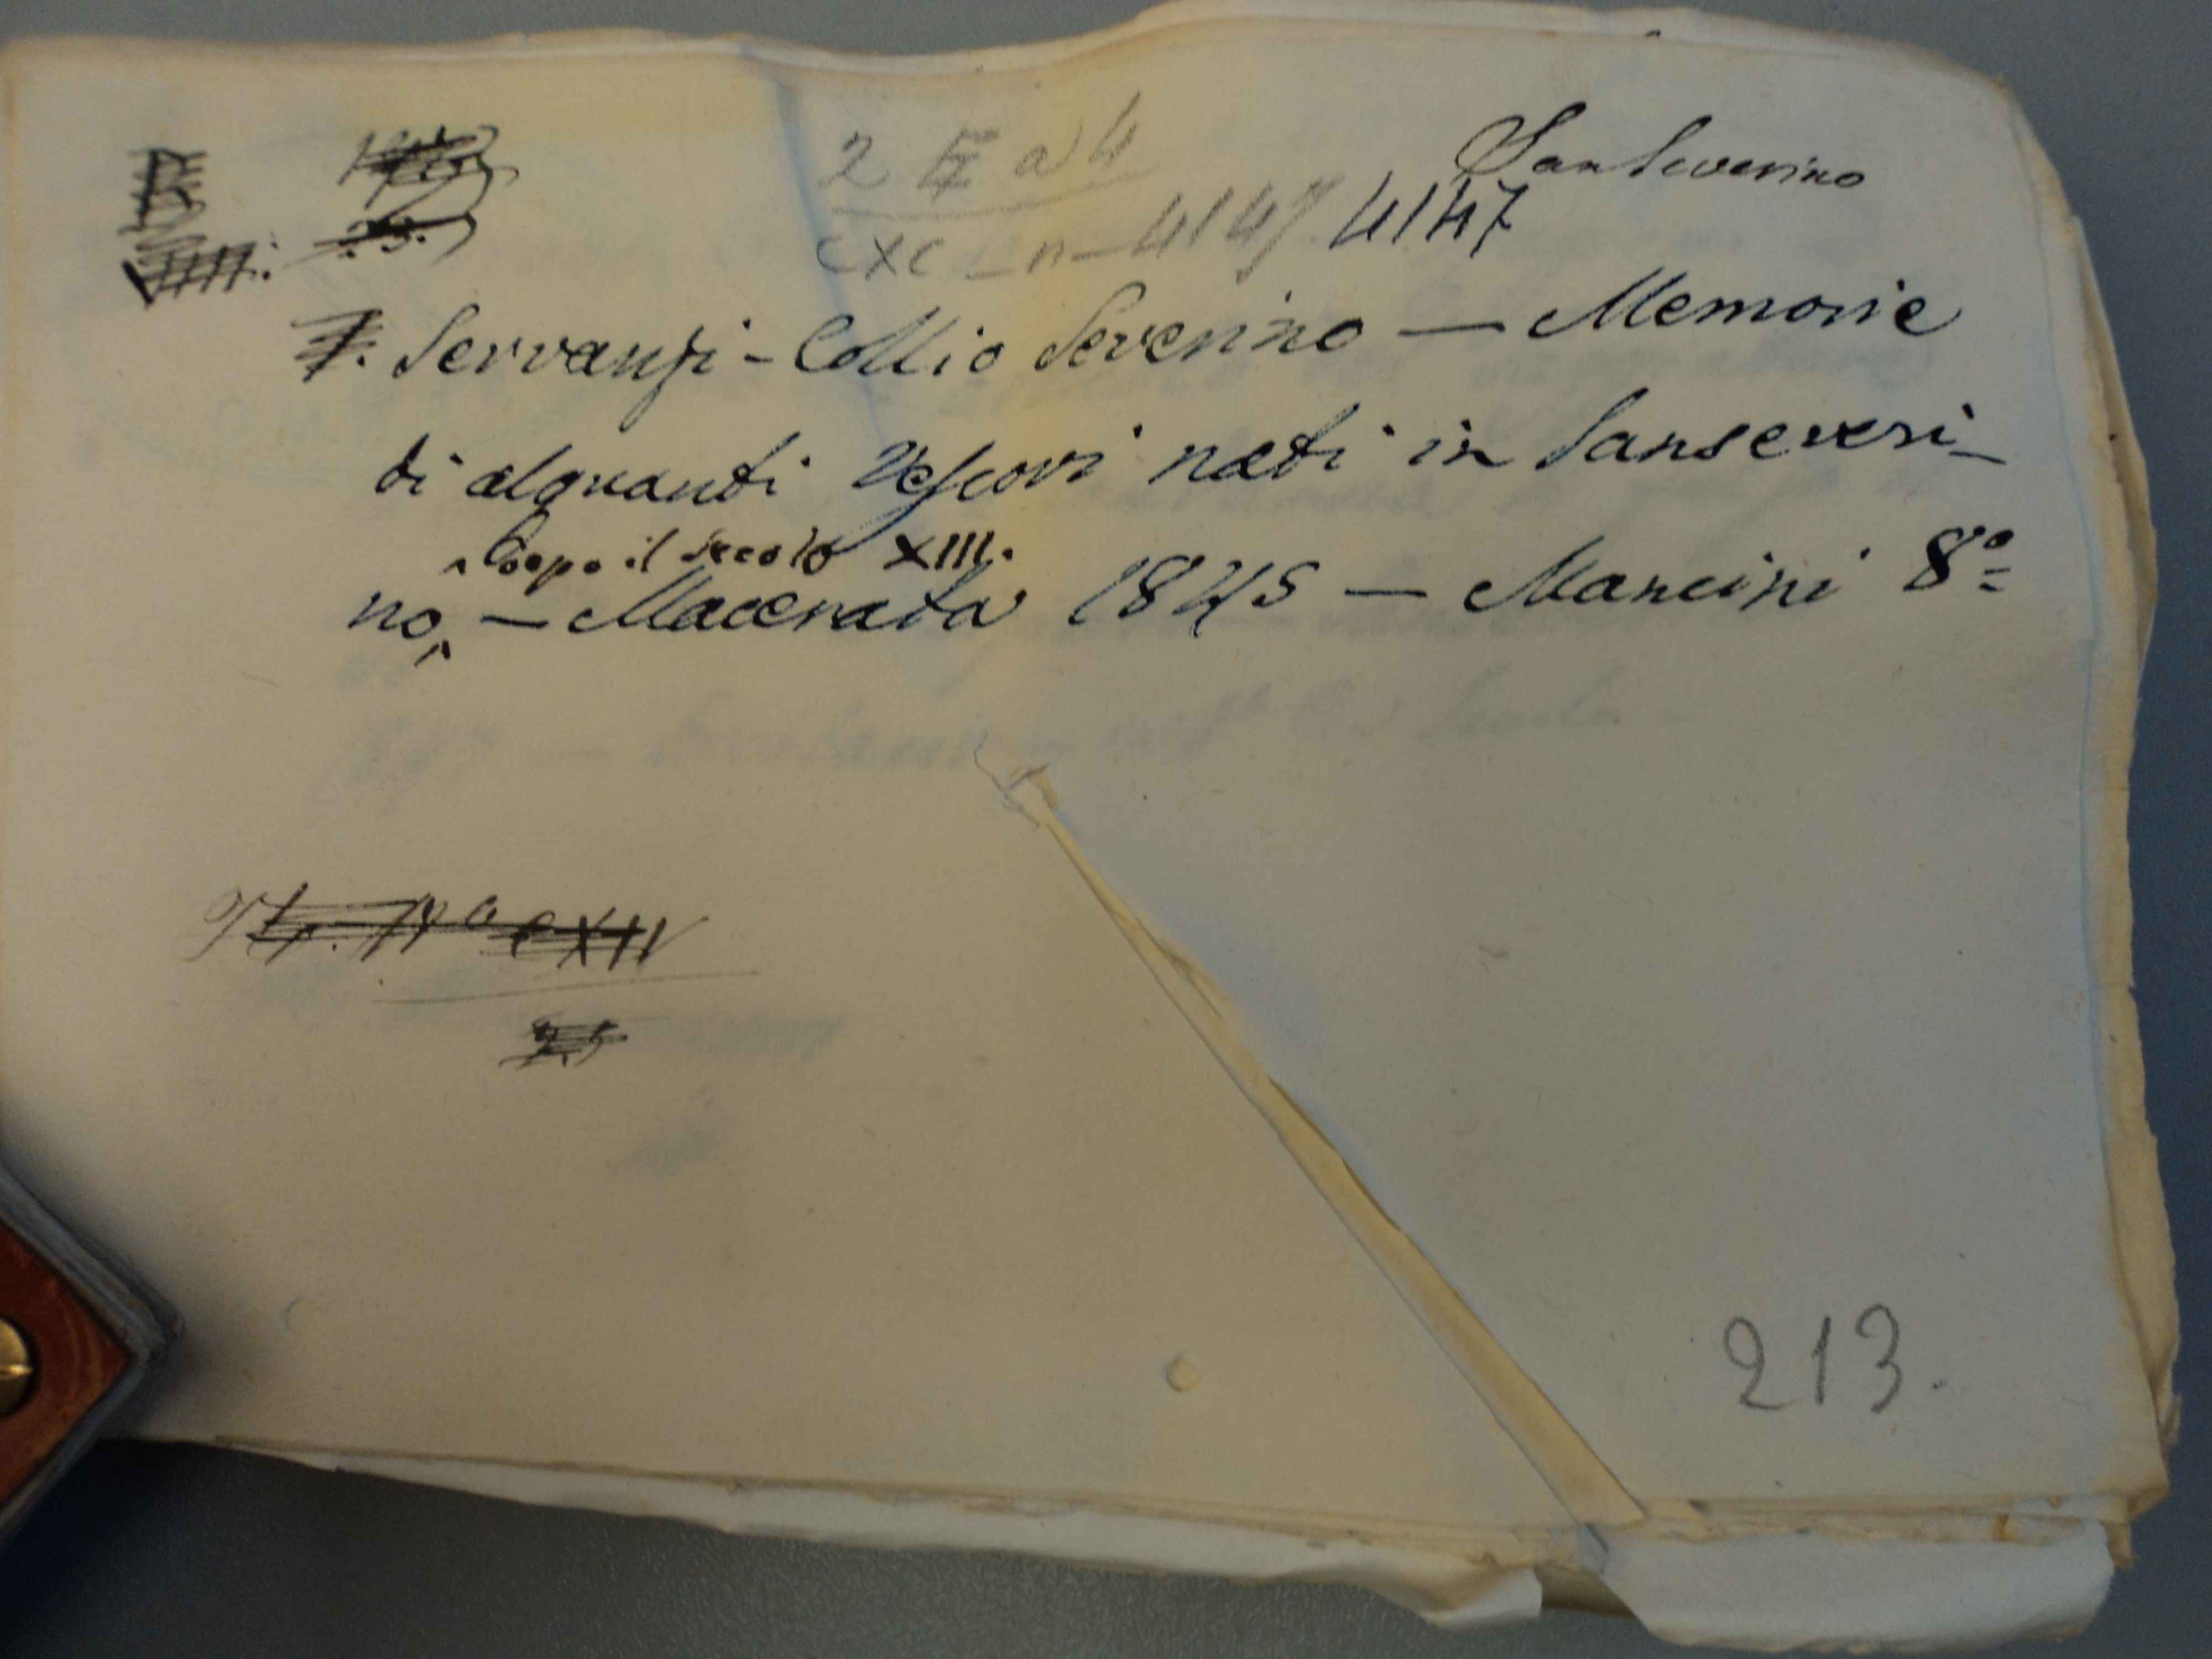 San Severino
2 E a 4
cxc - n - 4147 4147
Servanzi-Collio Severino — Memorie
di alquanti Vescovi nati in Sanseveri-
dopo il secolo XIII.
no, — Macerata 1845 — Mancini 8º
213.